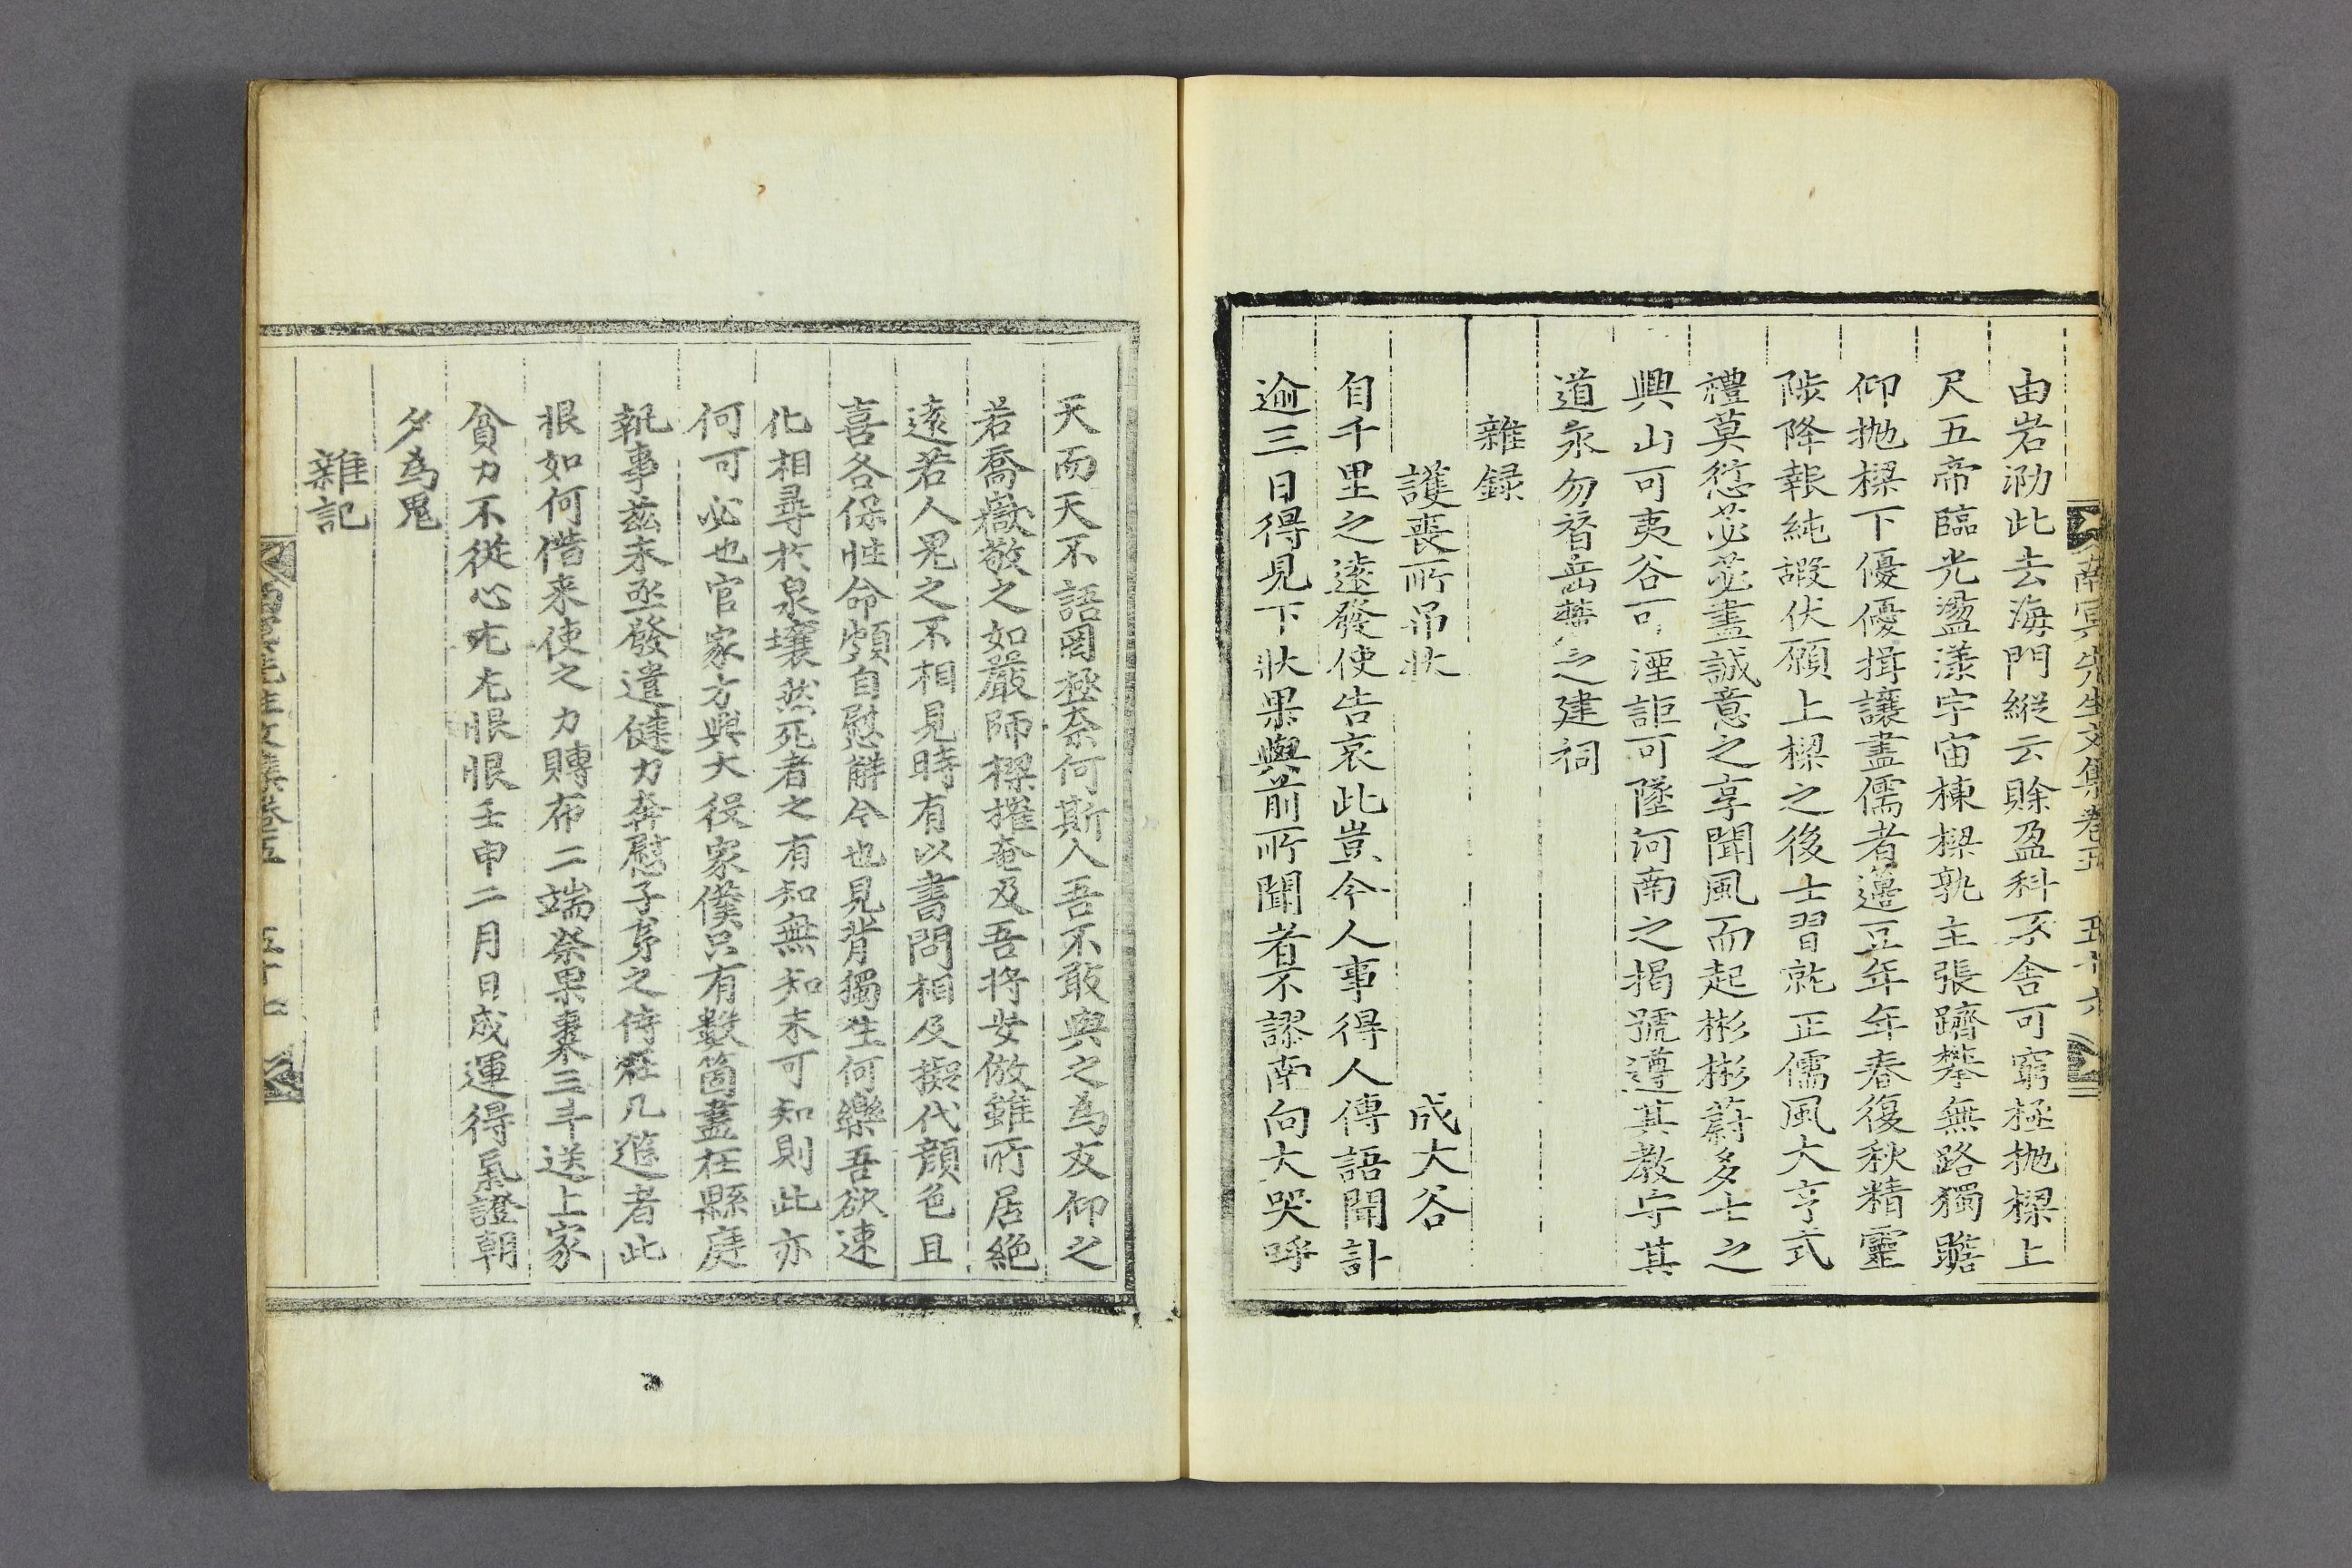 南冥先生文集卷五 五十六
由岩泐此去海門縱云賖盈科不舍可窮極抛樑上
尺五帝臨光盪漾宇宙棟樑孰主張躋攀無路獨瞻
仰抛樑下優優揖讓盡儒者籩豆年年春復秋精靈
陟降報純嘏伏願上樑之後士習就正儒風大亨式
禮莫愆苾苾盡誠意之享聞風而起彬彬蔚多士之
興山可夷谷可湮詎可墜河南之揭號遵其教守其
道永勿替岳英之建祠
雜録
護喪所吊狀 成大谷
自千里之遠發使告哀此豈今人事得人傳語聞訃
逾三日得見下狀果與前所聞者不謬南向大哭呼
天而天不語罔極奈何斯人吾不敢與之為友仰之
若喬嶽敬之如嚴師樑摧奄及吾將安倣雖所居絶
遠若人晃之不相見時有以書問相及擬代顔色且
喜各保性命頗自慰觧今也見背獨生何樂吾欲速
化相尋於泉壤然死者之有知無知未可知則此亦
何可必也官家方興大役家僕只有數箇盡在縣庭
執事茲未亟發遣健力奔慰子身之侍在几筵者此
恨如何偕来使之力賻布二端祭果棗三斗送上家
貧力不從心尤尤恨恨壬申二月日成運得氣證朝
夕為鬼
雜記
五十七